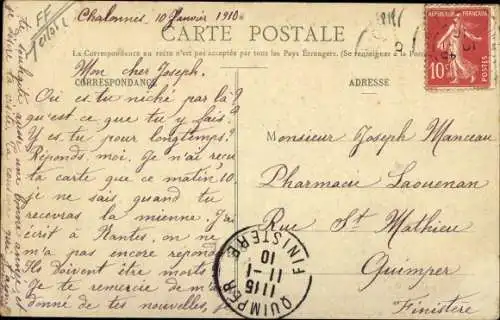 Chalonnes, 10 Janvier 1910.
CARTE POSTALE
La Correspondance au recto n'est pas acceptée par tous les Pays Étrangers. (Se renseigner à la Poste
CORRESPONDANCE
ADRESSE
RÉPUBLIQUE FRANÇAISE
10c
POSTES
Mon cher Joseph.
Où es tu niché par là?
qu'est ce que tu y fais?
Y es tu pour longtemps?
Réponds, moi. Je n'ai reçu
ta carte que ce matin 10
je ne sais quand tu
recevras la mienne. J'ai
écrit à Nantes, on ne
m'a pas encore répondu
Ils doivent être morts
Je te remercie de m'
donné de tes nouvelles,
Monsieur Joseph Manceau
Pharmacie Laouenan
Rue St Mathieu
Quimper
Finistère
QUIMPER
11 15
11-1
10
FINISTERE